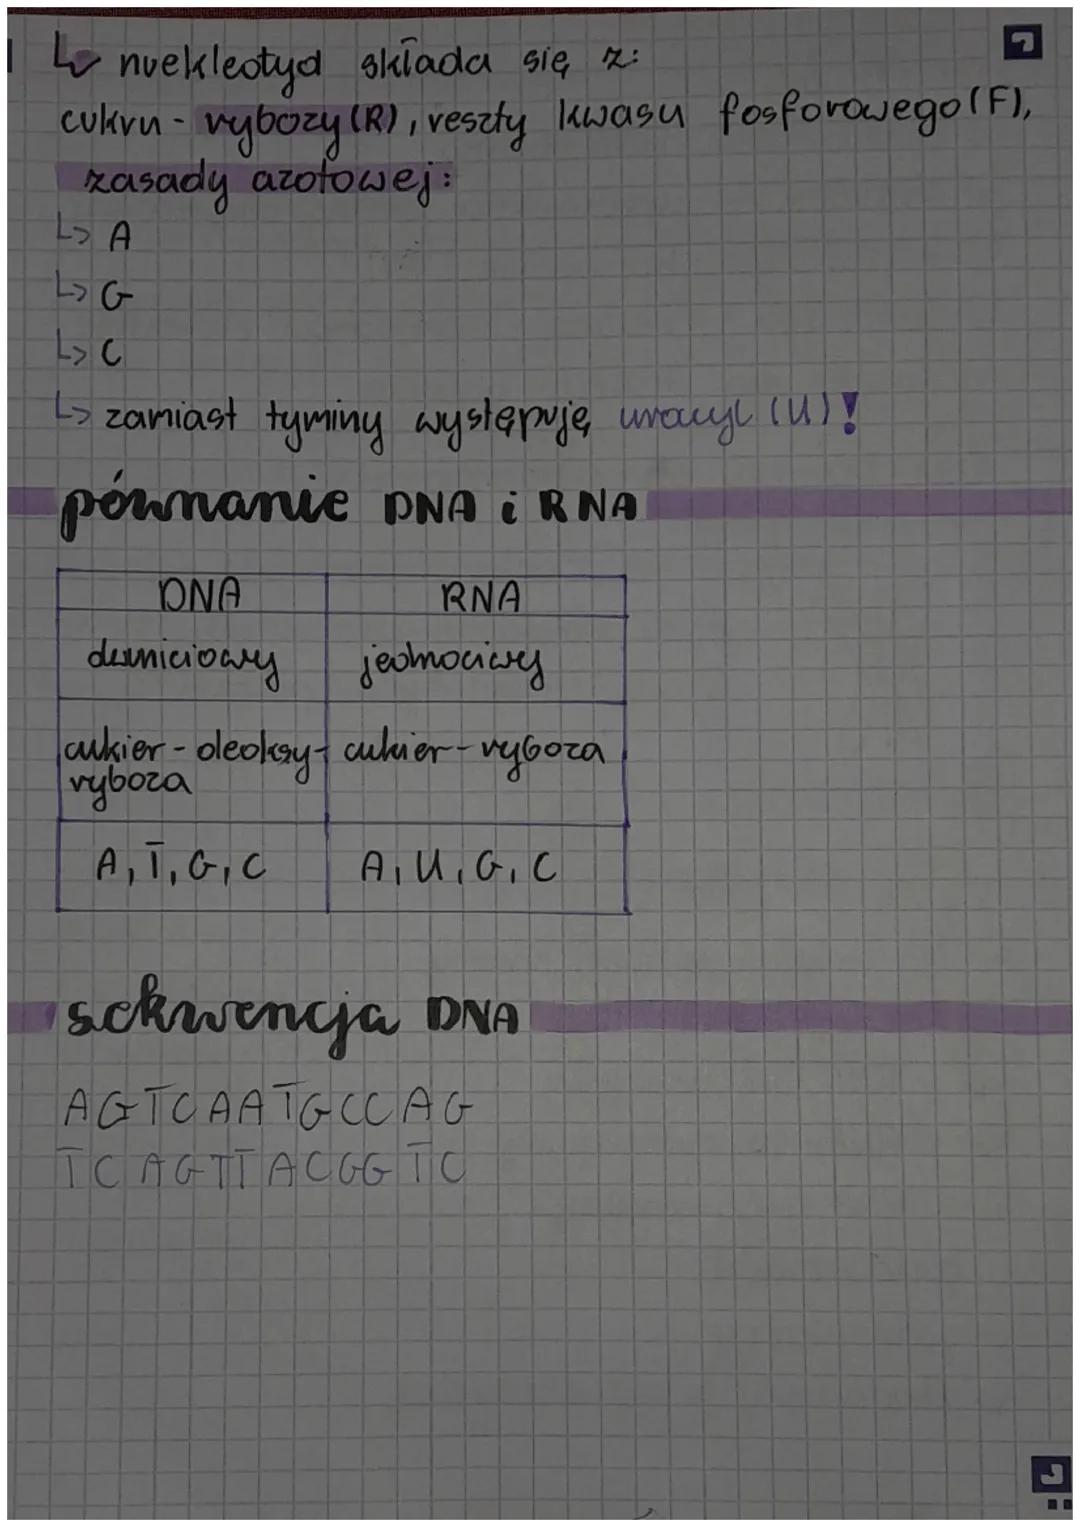 ↳ nuekleotyd składa się z:
cukru - rybozy (R), reszty kwasu fosforowego (F),
zasady azotowej:
↳ A
↳ G
↳ C
↳ zamiast tyminy występuję uracyl (U)!
pównanie DNA i RNA
DNA RNA
dwuniciowy jednociwy
cukier - deoksy- cukier - ryboza
ryboza
A, T, G, C A, U, G, C
sekwencja DNA
AGTCAATGCCAG
TCAGTTACGGTC